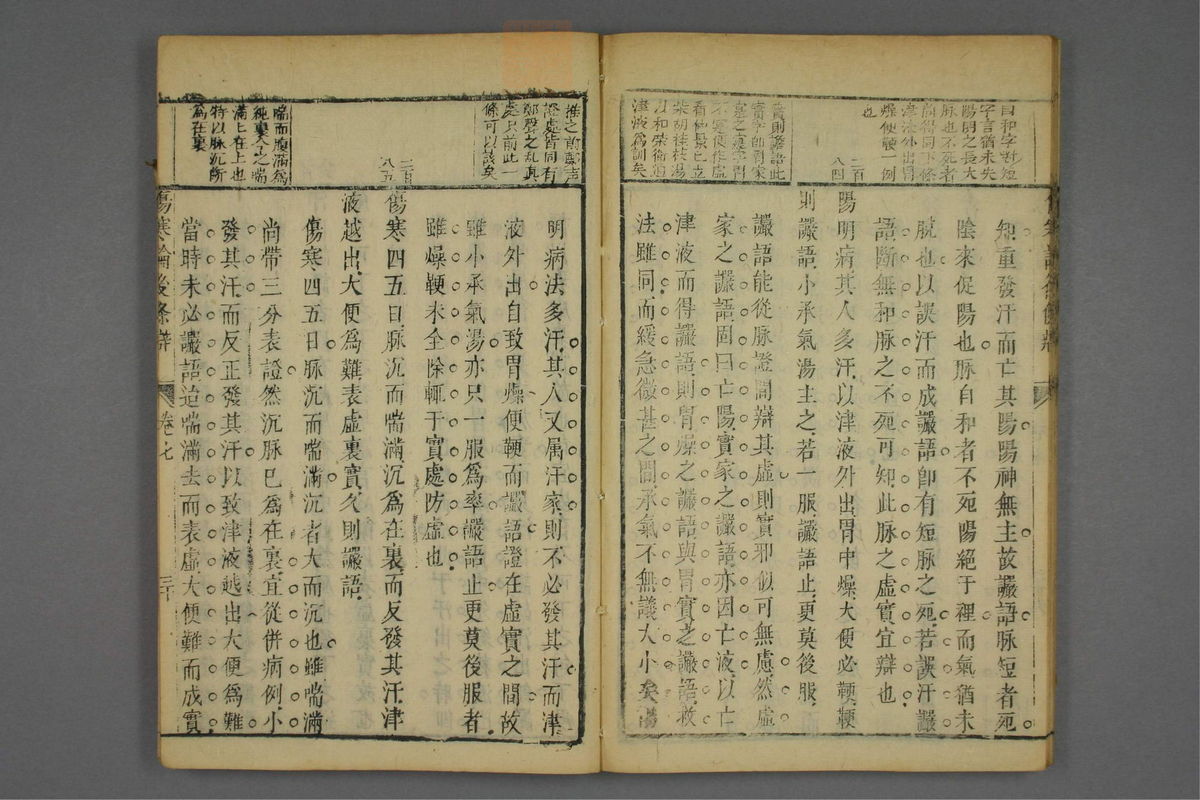 自和字對短
字言猶未失
陽明之長大
脉也不死者
津液外出胃
燥便鞕一例
也
二百
八四
實則讝語此
實字即胃家
實之實字胃
不實便作虛
看仲景已立
柴胡桂枝湯
以和榮衛通
津液為訓矣
知重發汗而亡其陽陽神無主故讝語脉短者死
陰來促陽也脉自和者不死陽絕于裡而氣猶未
脫也以誤汗而成讝語卽有短脉之死若誤汗讝
語斷無和脉之不死可知此脉之虛實宜辯也
陽明病其人多汗以津液外出胃中燥大便必鞕鞕
則讝語小承氣湯主之若一服讝語止更莫後服
讝語能從脉證間辯其虛則實邪似可無慮然虛
家之讝語固曰亡陽實家之讝語亦因亡液以亡
津液而得讝語則胃燥之讝語與胃實之讝語救
法雖同而緩急微甚之間承氣不無議大小矣陽
推之前鄭聲
證處皆同有
鄭聲之亂真
處只前此一
條可以該矣
二百
八五
喘而腹滿為
純裏今之喘
滿上在上也
特以脉沉斷
為在裏
明病法多汗其人又属汗家則不必發其汗而津
液外出自致胃燥便鞕而讝語證在虛實之間故
雖小承氣湯亦只一服為率讝語止更莫後服者
雖燥鞕未全除輒于實處防虛也
傷寒四五日脉沉而喘滿沉為在裏而反發其汗津
液越出大便為難表虛裏實久則讝語
傷寒四五日脉沉而喘滿沉者大而沉也雖喘滿
尚帶三分表證然沉脉已為在裏宜從併病例小
發其汗而反正發其汗以致津液越出大便為難
當時未必讝語迨喘滿去而表虛大便難而成實
傷寒論後條辨
卷七
三十